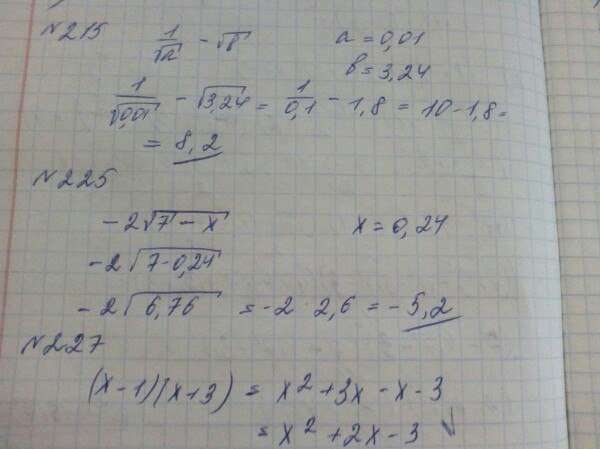 №215 1/√a − √b a = 0,01
b = 3,24
1/√0,01 − √3,24 = 1/0,1 − 1,8 = 10 − 1,8 =
= 8,2
№225
−2√7 − x x = 0,24
−2√7-0,24
−2√6,76 = −2 2,6 = −5,2
№227
(x − 1)(x + 3) = x² + 3x − x − 3
= x² + 2x − 3 ✓